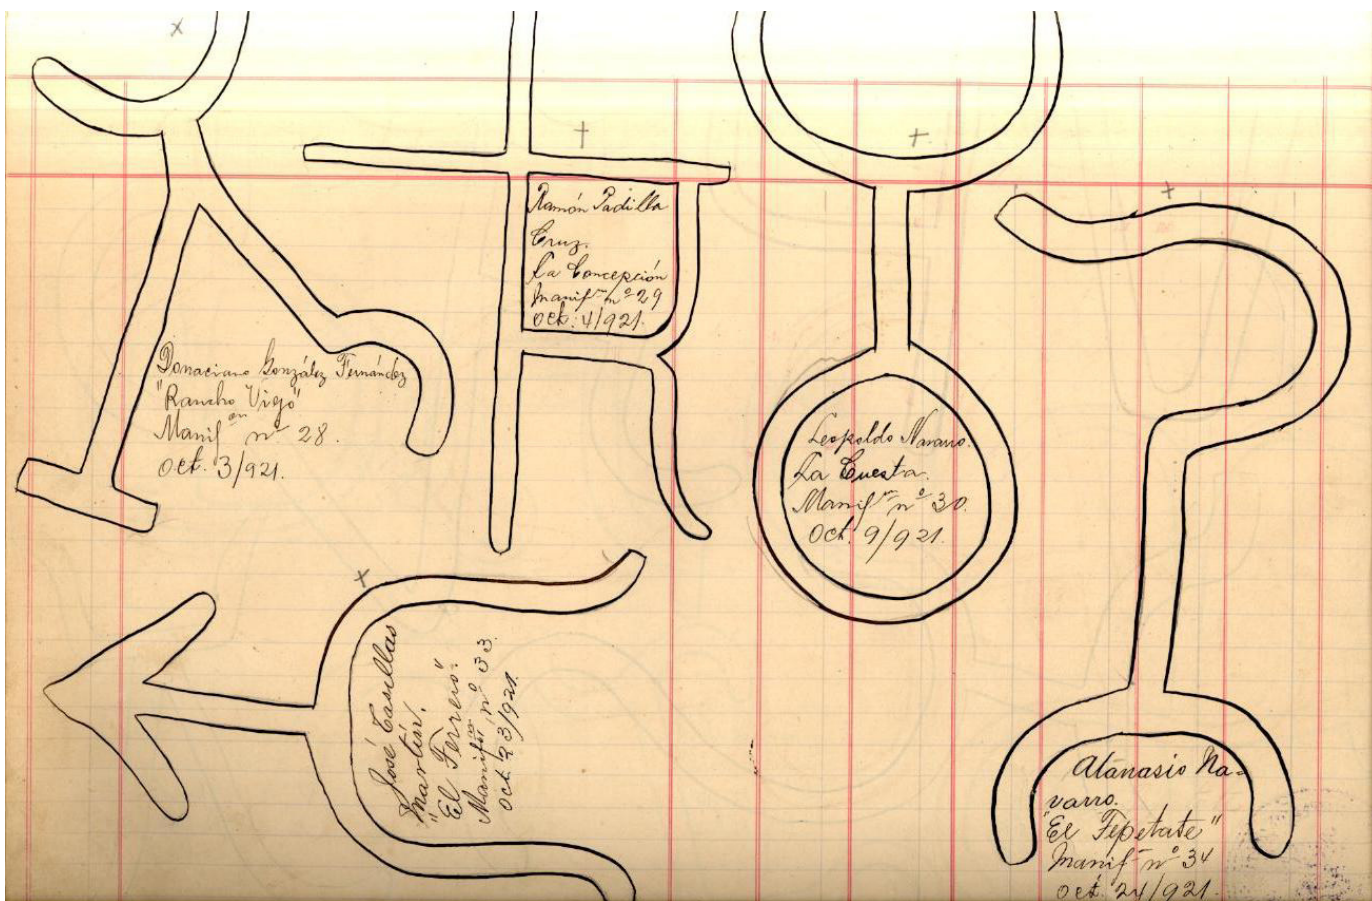 Donaciano González Fernández
"Rancho Viejo"
Manif.on nº 28.
Oct. 3/921.
Ramón Padilla
Cruz.
La Concepción
Manif.n nº 29
Oct. 4/921.
Leopoldo Navarro.
La Cuesta.
Manif.on nº 30.
Oct. 9/921.
José Casillas
Martín.
"El Terrero".
Manif.on nº 33.
Oct. 23/921.
Atanasio Na-
varro.
"El Tepetate"
Manif.n nº 34
Oct. 24/921.